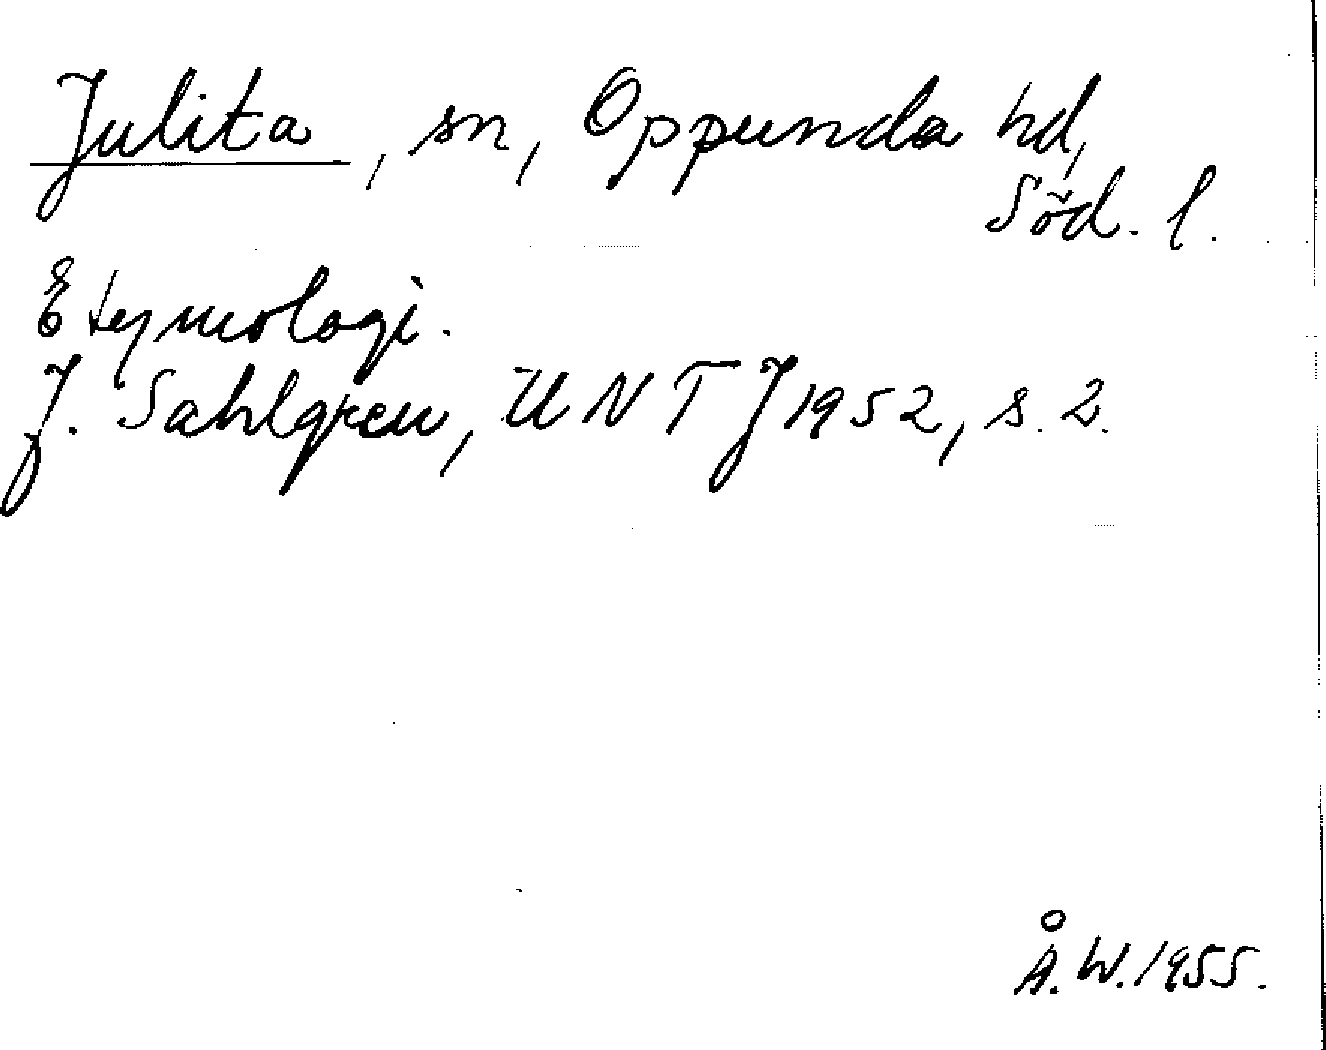 Julita, sn, Oppunda hd,
Söd. l.
Etymologi.
J. Sahlgren, UNT J 1952, s. 2.
Å.W. 1955.